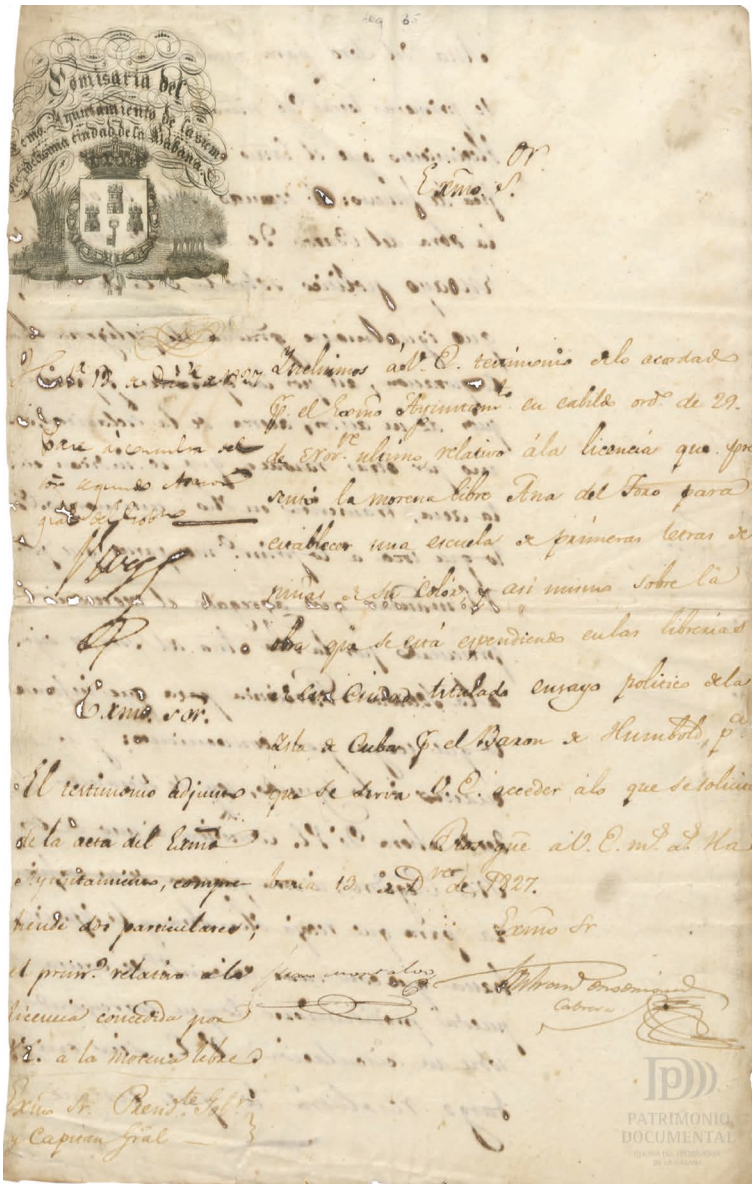 Comisaria del
Excmo. Ayuntamiento de la siem
pre fidelisima ciudad de la Habana.
Or.
Exmo S.
Dirihimos á V. E. testimonio de lo acordado
p. el Exmo Ayuntamto. en cabildo ordo. de 29.
de último, relativo á la licencia que pre
sentó la morena libre Ana del Toro para
establecer una escuela de primeras letras de
niñas de su color, y asi mismo sobre la
obra que se está espendiendo en las librerias
de esta Ciudad titulado ensayo politico de la
Isla de Cuba p. el Baron de Humbold, pa.
que se sirva V. E. acceder álo que se solicita
Dios gue. a V. E. ms. as. Ha
bana 13 de Dbre. de 1827.
Exmo Sr
Cabrera
Habª. 19 de Dbre. de 1827
Pase á consulta del
Sor. segundo Asesor
gral del Gobno
Exmo. Sor.
El testimonio adjunto
de la acta del Exmo
Ayuntamiento, compre
hende dos particulares;
el primo. relativo á la
licencia concedida por
V.E. a la morena libre
Exmo Sr. Presidte. Gobr.
y Capitan Gral
PATRIMONIO
DOCUMENTAL
OFICINA DEL HISTORIADOR
DE LA HABANA